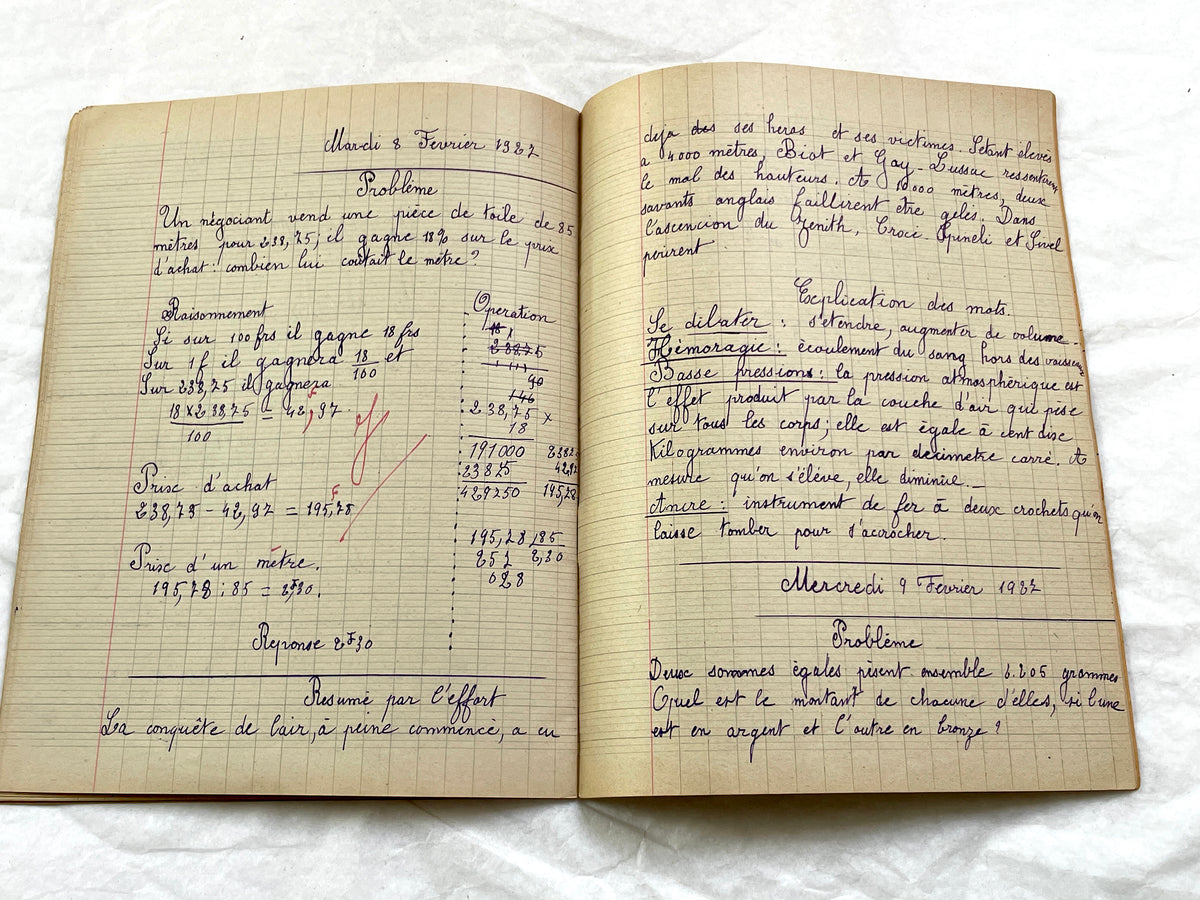 Mardi 8 Février 1927
Problème
Un négociant vend une pièce de toile de 85
mètres pour 238,75; il gagne 18% sur le prix
d'achat: combien lui coûtait le mètre?
Raisonnement
Si sur 100 frs il gagne 18 frs
Sur 1f il gagnera 18/100 et
Sur 238,75 il gagnera
18 x 238 75 = 42,F97.
100
Prix d'achat
238,75 - 42,97 = 195,F78
Prix d'un mètre.
195,78 : 85 = 2,F30.
Réponse 2F30
Opération
238,75 x
18
191000
23875
429750
2382
42,97
195,78
195,28 85
252 2,30
028
Resumé par l'effort
La conquête de l'air, à peine commencé, a eu
deja des ses heros et ses victimes. Setant élevés
a 4000 mètres, Biot et Gay-Lussac ressentirent
le mal des hauteurs. A 10000 mètres, deux
savants anglais faillirent etre gelés. Dans
l'ascencion du Zenith, Crocé-Spineli et Sivel
perirent.
Explication des mots.
Se dilater : s'etendre, augmenter de volume.
Hémoragie : écoulement du sang hors des vaisseaux
Basse pressions : la pression atmosphèrique est
l'effet produit par la couche d'air qui pèse
sur tous les corps; elle est égale à cent dix
Kilogrammes environ par décimetre carré. A
mesure qu'on s'élève, elle diminue.
Ancre : instrument de fer à deux crochets qu'on
laisse tomber pour s'accrocher.
Mercredi 9 Fevrier 1927
Problème
Deux sommes égales pèsent ensemble 6.205 grammes
Quel est le montant de chacune d'elles, si l'une
est en argent et l'autre en bronze?